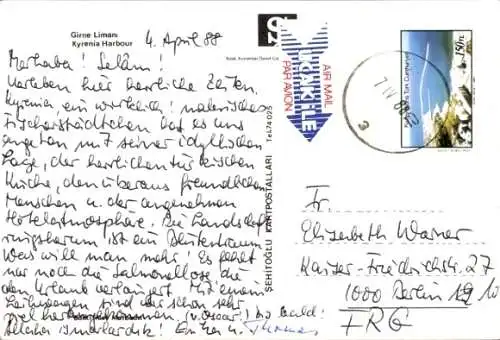 Girne Limanı
Kyrenia Harbour
4. April 88
Merhaba! Selâm!
Verleben hier herrliche Zeiten.
Kyrenia ein wirklich malerisches
Fischerstädtchen hat es uns
angetan mit seiner idyllischen
Lage, der herrlichen türkischen
Küche, den überaus freundlichen
Menschen u. der angenehmen
Hotelatmosphäre. Die Landschaft
ringsherum ist ein Blütentraum.
Was will man mehr! Es fehlt
nur noch die Salmonellose die
den Urlaub verlängert. Mit einem
Leihwagen sind wir schon sehr
viel herumgekommen. (v. Oscar) Bis bald!
Allaha ısmarladık! Erika u. Thomas
ŞEHİTOĞLU KARTPOSTALLARI Tel 74 025
UÇAKLE
AIR MAIL
PAR AVION
150 TL
3
Fr.
Elisabeth Warner
Kaiser-Friedrichstr. 27
1000 Berlin 10
FRG